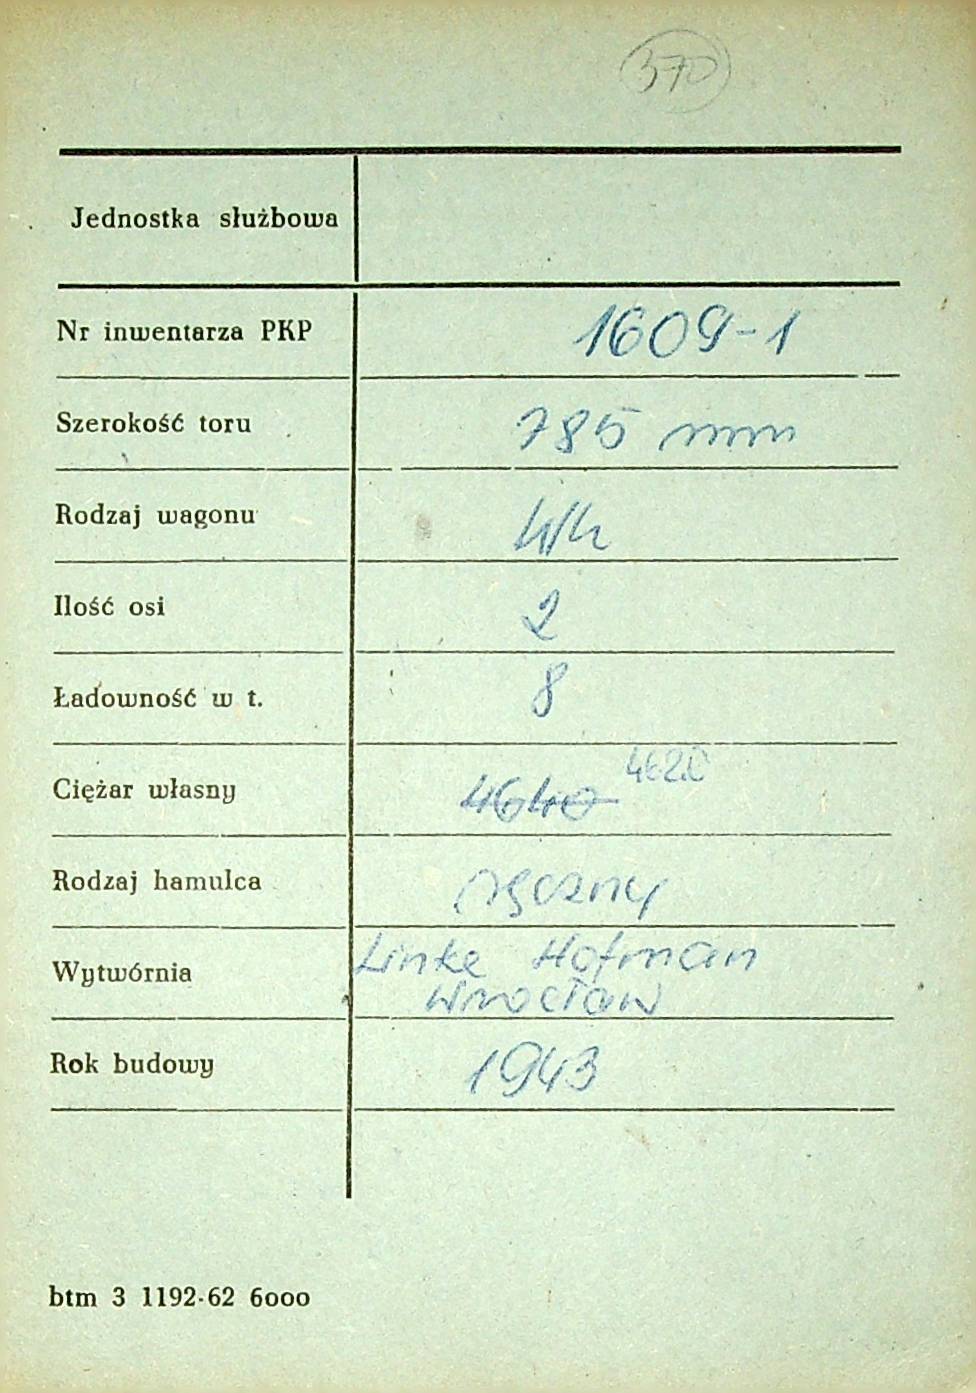 370
Jednostka służbowa
Nr inwentarza PKP 1609-1
Szerokość toru 785 mm
Rodzaj wagonu
Ilość osi 2
Ładowność w t. 8
Ciężar własny 4640 4620
Rodzaj hamulca ręczny
Wytwórnia Linke Hofman
Wrocław
Rok budowy 1943
btm 3 1192-62 6000